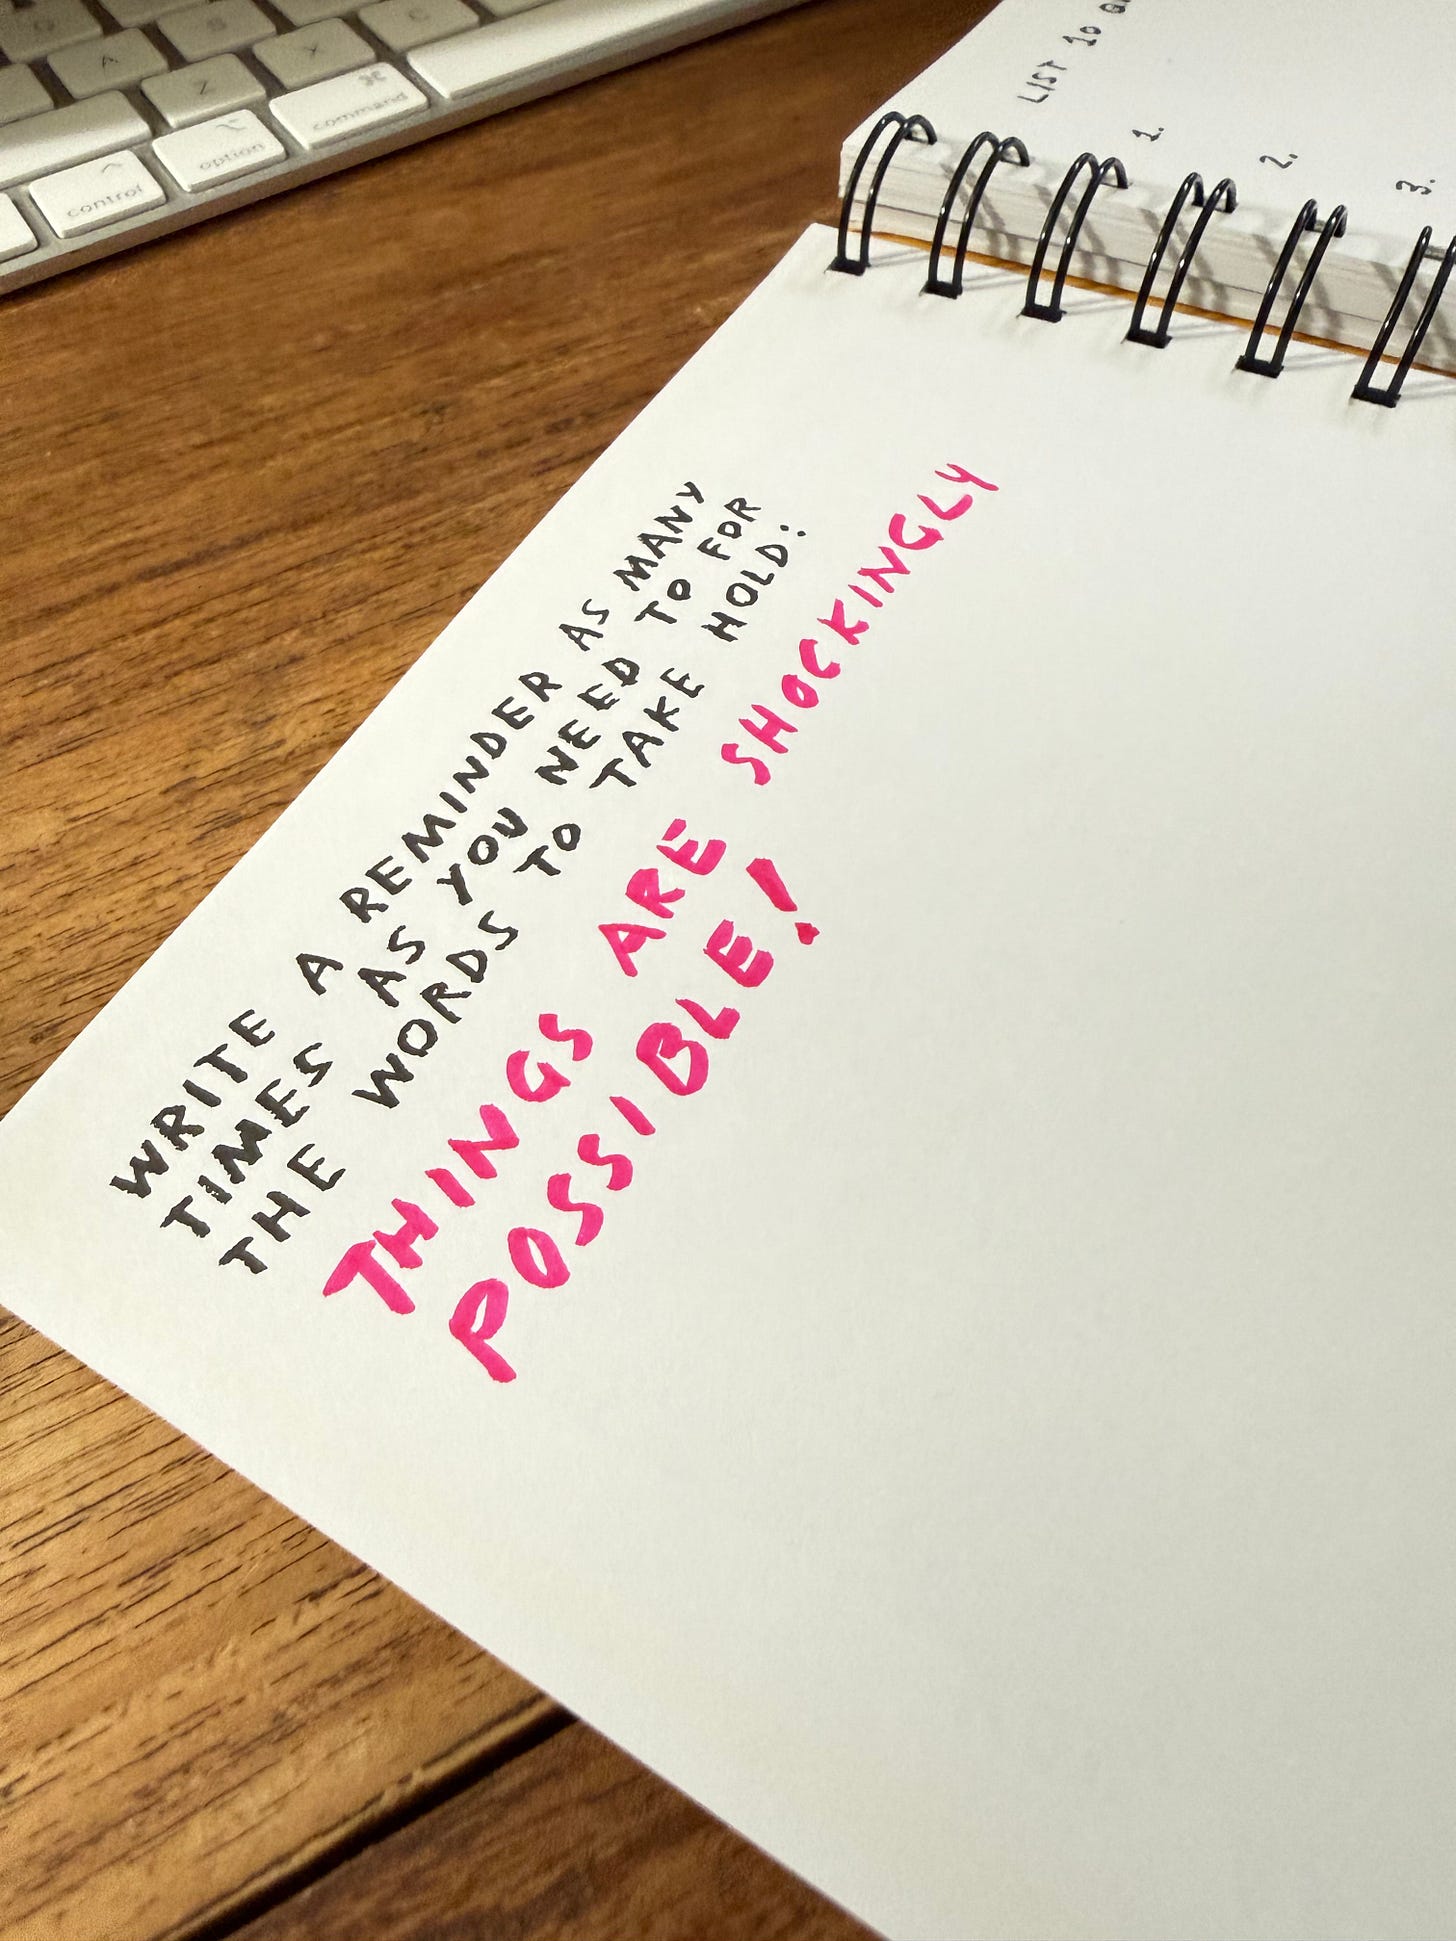 A
S
Z
X
C
control
option
⌘
command
LIST 10
1.
2.
3.
WRITE A REMINDER AS MANY
TIMES AS YOU NEED TO FOR
THE WORDS TO TAKE HOLD:
THINGS ARE SHOCKINGLY
POSSIBLE!